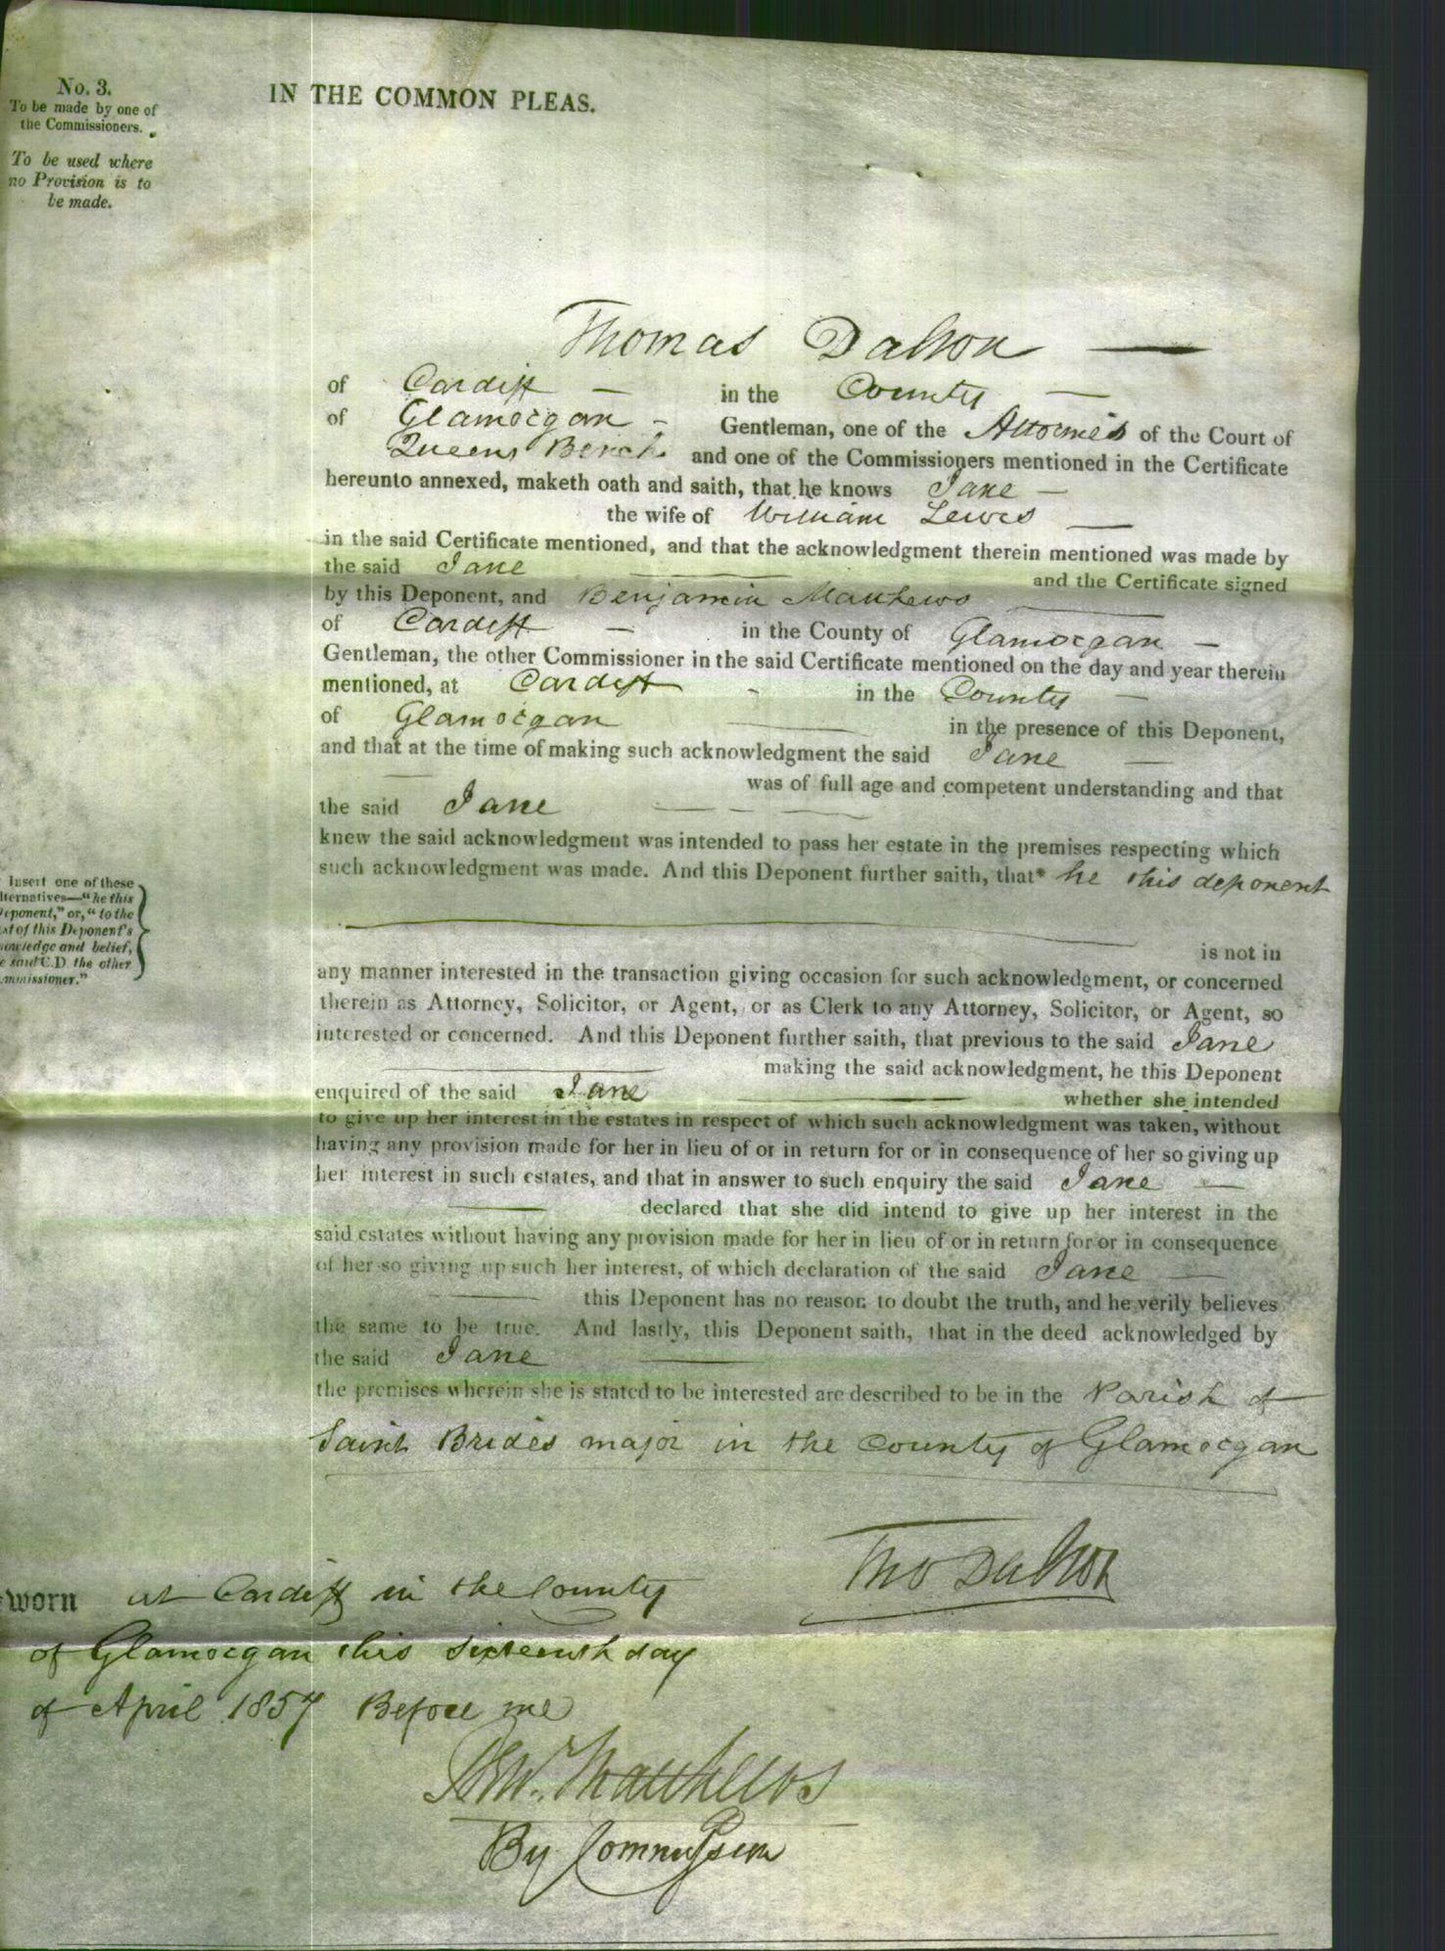 No. 3.
To be made by one of
the Commissioners.
To be used where
no Provision is to
be made.
IN THE COMMON PLEAS.
Thomas Dalton
of Cardiff in the County
of Glamorgan Gentleman, one of the Attornies of the Court of
Queens Bench and one of the Commissioners mentioned in the Certificate
hereunto annexed, maketh oath and saith, that he knows Jane
the wife of William Lewis
in the said Certificate mentioned, and that the acknowledgment therein mentioned was made by
the said Jane and the Certificate signed
by this Deponent, and Benjamin Matthews
of Cardiff in the County of Glamorgan
Gentleman, the other Commissioner in the said Certificate mentioned on the day and year therein
mentioned, at Cardiff in the County
of Glamorgan in the presence of this Deponent,
and that at the time of making such acknowledgment the said Jane
was of full age and competent understanding and that
the said Jane
knew the said acknowledgment was intended to pass her estate in the premises respecting which
such acknowledgment was made. And this Deponent further saith, that* he this deponent
Insert one of these
lternatives—"he this
eponent," or, "to the
st of this Deponent's
nowledge and belief,
e said C.D. the other
mmissioner."
is not in
any manner interested in the transaction giving occasion for such acknowledgment, or concerned
therein as Attorney, Solicitor, or Agent, or as Clerk to any Attorney, Solicitor, or Agent, so
interested or concerned. And this Deponent further saith, that previous to the said Jane
making the said acknowledgment, he this Deponent
enquired of the said Jane whether she intended
to give up her interest in the estates in respect of which such acknowledgment was taken, without
having any provision made for her in lieu of or in return for or in consequence of her so giving up
her interest in such estates, and that in answer to such enquiry the said Jane
declared that she did intend to give up her interest in the
said estates without having any provision made for her in lieu of or in return for or in consequence
of her so giving up such her interest, of which declaration of the said Jane
this Deponent has no reason to doubt the truth, and he verily believes
the same to be true. And lastly, this Deponent saith, that in the deed acknowledged by
the said Jane
the premises wherein she is stated to be interested are described to be in the Parish of
Saint Brides major in the County of Glamorgan
Tho Dalton
worn at Cardiff in the County
of Glamorgan this sixteenth day
of April 1857 Before me
Matthews
By Commission